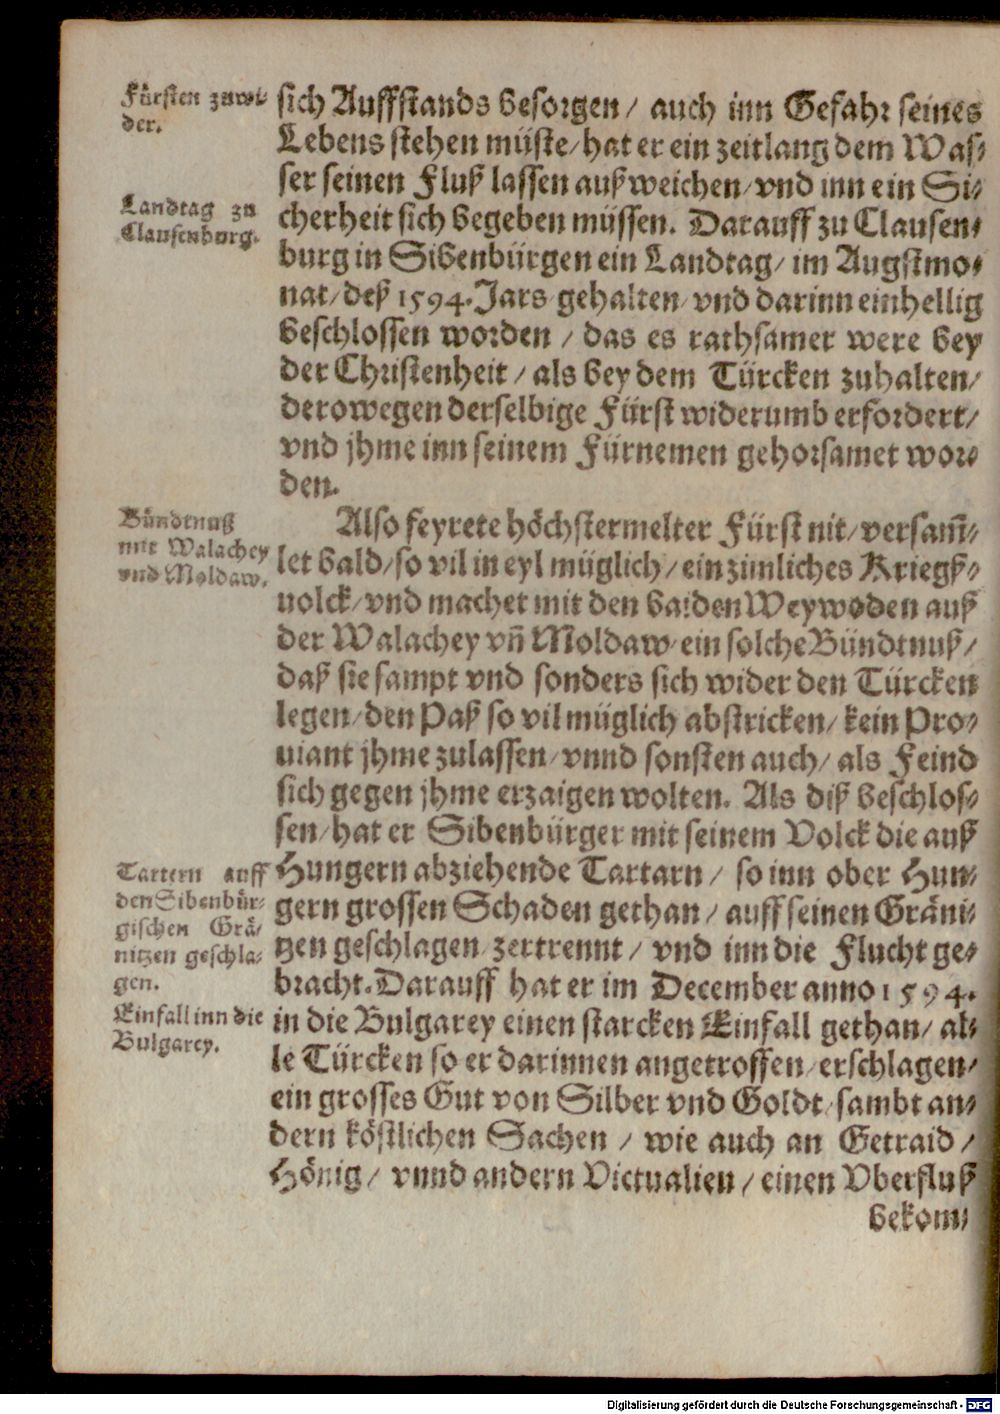 Fürsten zuwi-
der.
sich Auffstands besorgen / auch inn Gefahr seines
Lebens stehen müste / hat er ein zeitlang dem Was-
ser seinen Fluß lassen außweichen / vnd inn ein Si-
Landtag zu
Clausenburg.
cherheit sich begeben müssen. Darauff zu Clausen-
burg in Sibenbürgen ein Landtag / im Augstmo-
nat / deß 1594. Jars gehalten / vnd darinn einhellig
beschlossen worden / das es rathsamer were bey
der Christenheit / als bey dem Türcken zuhalten /
derowegen derselbige Fürst widerumb erfordert /
vnd jhme inn seinem Fürnemen gehorsamet wor-
den.
Bündtnuß
mit Walachey
vnd Moldaw.
Also feyrete höchstermelter Fürst nit / versam̃-
let bald / so vil in eyl müglich / ein zimliches Kriegß-
uolck / vnd machet mit den baiden Weywoden auß
der Walachey vñ Moldaw / ein solche Bündtnuß /
daß sie sampt vnd sonders sich wider den Türcken
legen / den Paß so vil müglich abstricken / kein Pro-
uiant jhme zulassen / vnnd sonsten auch / als Feind
sich gegen jhme erzaigen wolten. Als diß beschlos-
sen / hat er Sibenbürger mit seinem Volck die auß
Tartern auff
den Sibenbür-
gischen Grä-
nitzen geschla-
gen.
Hungern abziehende Tartarn / so inn ober Hun-
gern grossen Schaden gethan / auff seinen Gräni-
tzen geschlagen / zertrennt / vnd inn die Flucht ge-
bracht. Darauff hat er im December anno 1594.
Einfall inn die
Bulgarey.
in die Bulgarey einen starcken Einfall gethan / al-
le Türcken so er darinnen angetroffen / erschlagen /
ein grosses Gut von Silber vnd Goldt / sambt an-
dern köstlichen Sachen / wie auch an Getraid /
Hönig / vnnd andern Victualien / einen Vberfluß
bekom-
Digitalisierung gefördert durch die Deutsche Forschungsgemeinschaft - DFG